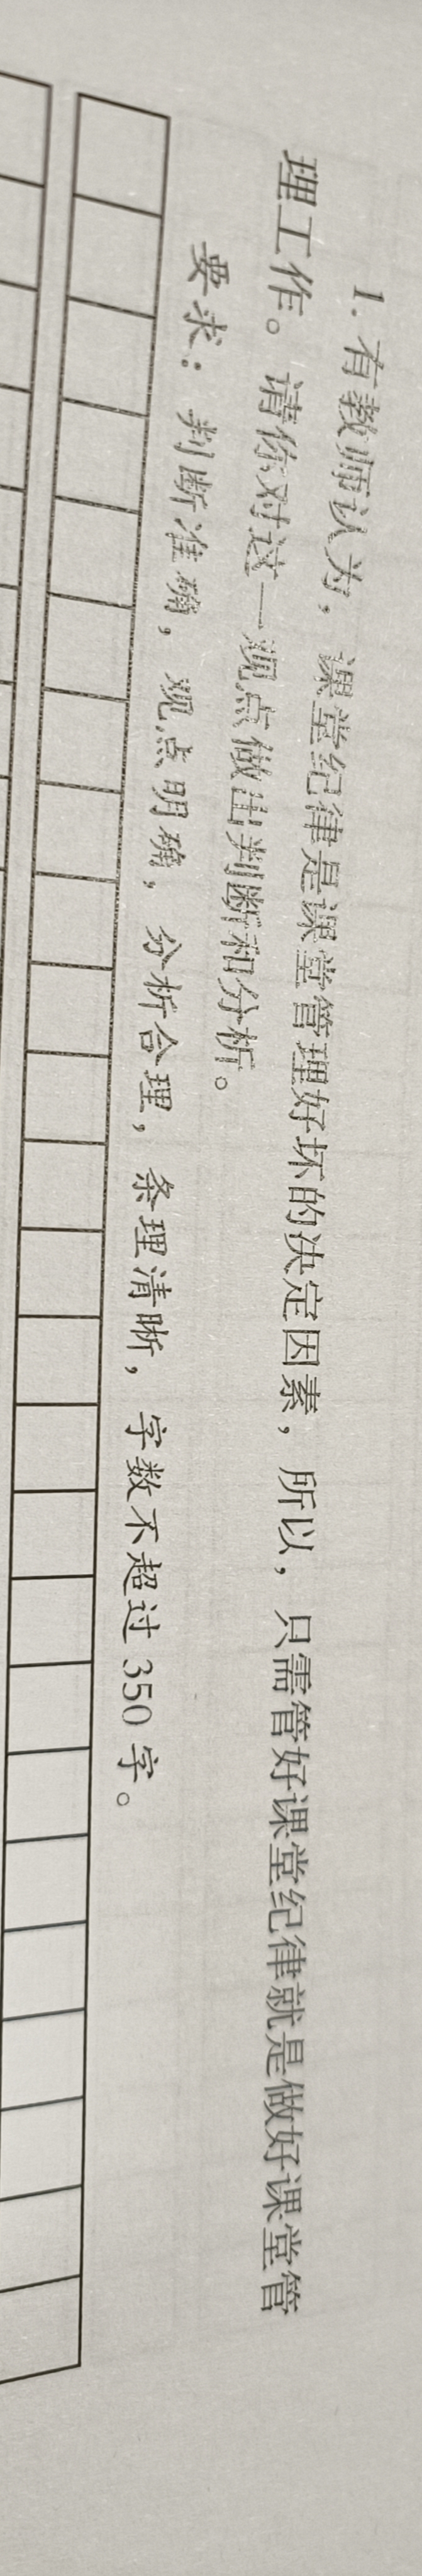 1. 有教师认为，课堂纪律是课堂管理好坏的决定因素，所以，只需管好课堂纪律就是做好课堂管
理工作。请你对这一观点做出判断和分析。
要求：判断准确，观点明确，分析合理，条理清晰，字数不超过350字。